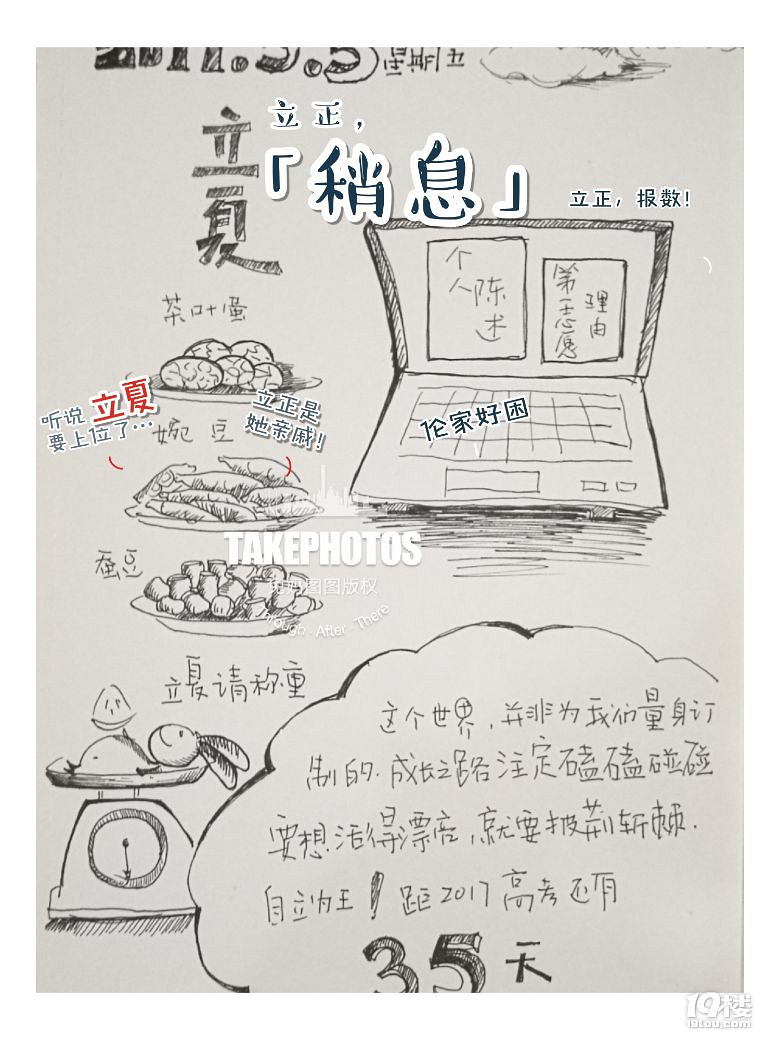 2017.5.5星期五
立夏
立正，
「稍息」
立正，报数！
个人陈述
第一志愿
理由
茶叶蛋
听说立夏
要上位了…
立正是
她亲戚！
伦家好困
婉豆
TAKEPHOTOS
Through · After · There
蚕豆
立夏请称重
这个世界，并非为我们量身订
制的.成长之路注定磕磕碰碰
要想活得漂亮，就要披荆斩棘.
自立为王！距2017高考还有
35天
19楼
19lou.com